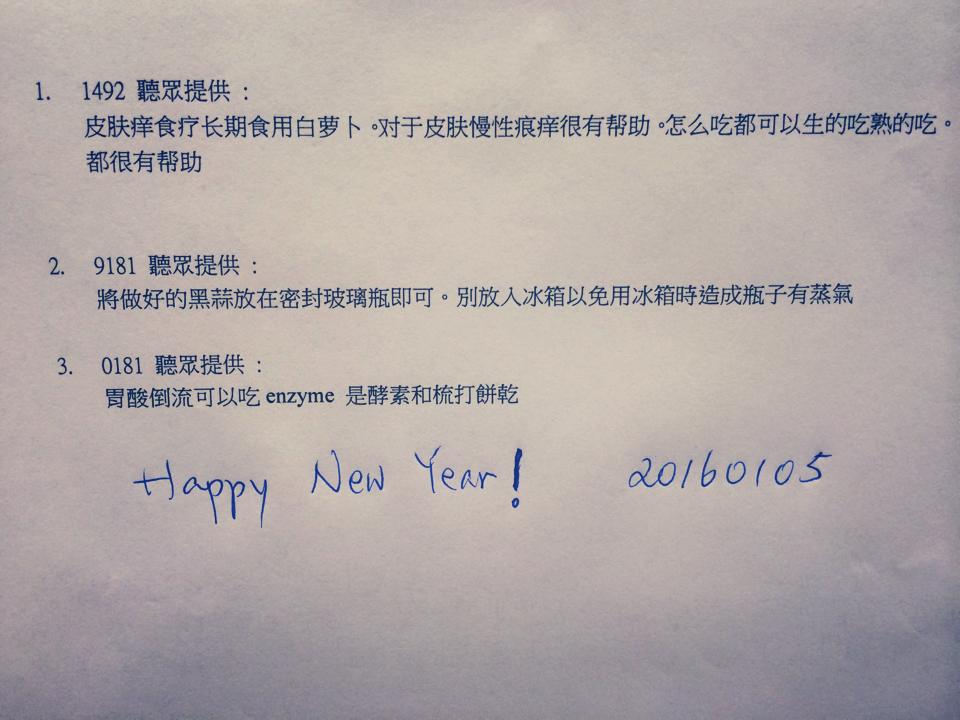 1. 1492 聽眾提供：
皮肤痒食疗长期食用白萝卜。对于皮肤慢性痕痒很有帮助。怎么吃都可以生的吃熟的吃。
都很有帮助
2. 9181 聽眾提供：
將做好的黑蒜放在密封玻璃瓶即可。別放入冰箱以免用冰箱時造成瓶子有蒸氣
3. 0181 聽眾提供：
胃酸倒流可以吃 enzyme 是酵素和梳打餅乾
Happy New Year! 20160105